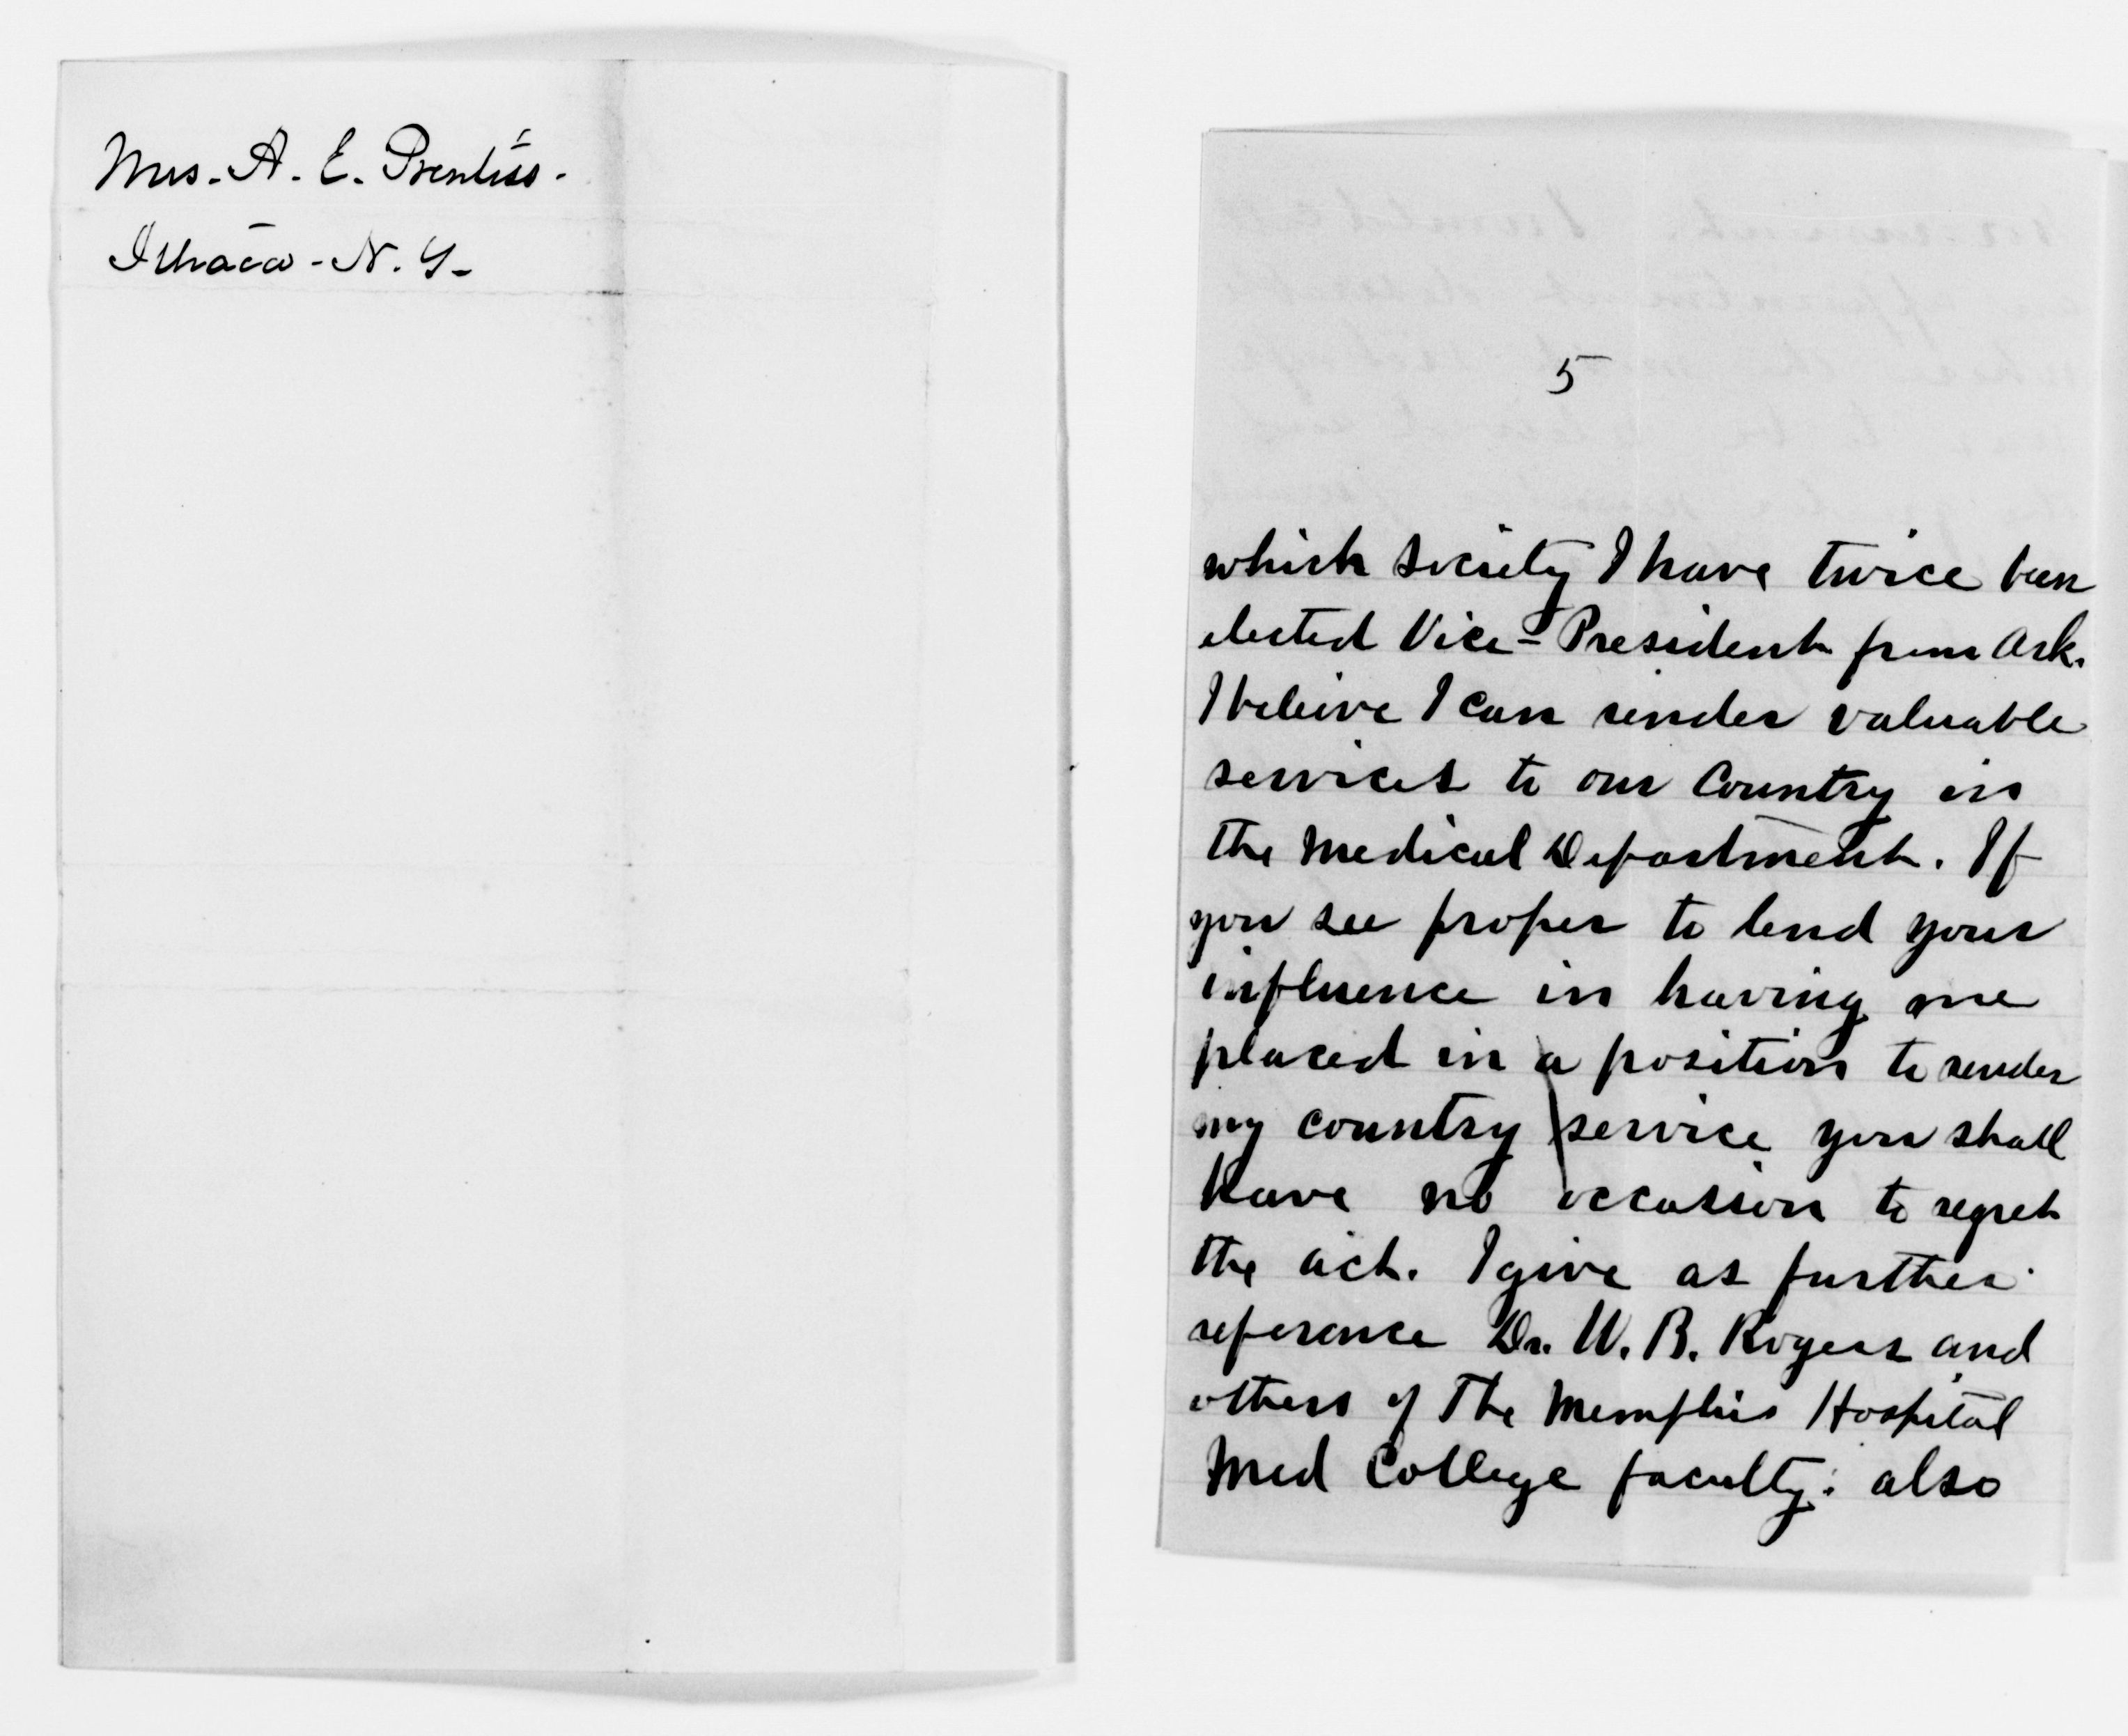 Mrs. A. E. Prentiss.
Ithaca - N. Y.
5
which society I have twice been
elected Vice-President from Ark.
I beleive I can render valuable
services to our Country in
the Medical Department. If
you see proper to lend your
influence in having me
placed in a position to render
my country service you shall
have no occassion to regret
the act. I give as further
reference Dr. W. B. Rogers and
others of The Memphis Hospital
Med College faculty: also